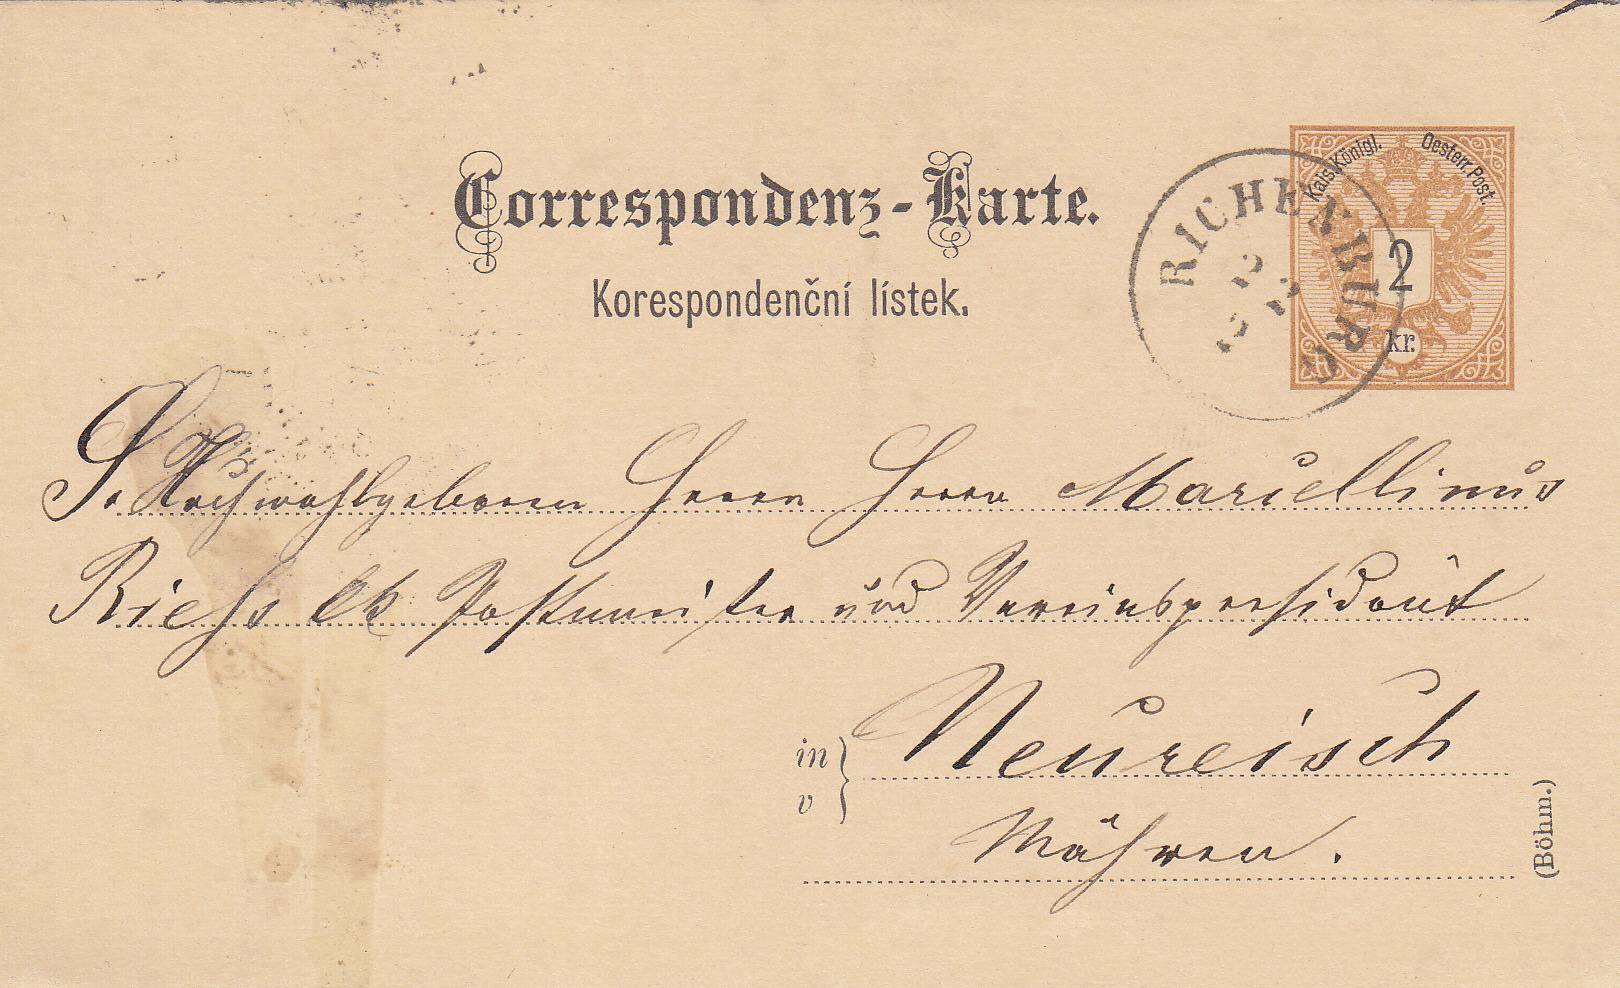 Correspondenz-Karte.
Korespondenční lístek.
Kais. Königl. Oesterr. Post.
2
kr.
RICHENBURG
S. Hochwohlgeboren Herrn Herrn Marcellinus
Riehs Postmeister und Vereinspresident
in Neureisch
v
Mähren.
(Böhm.)